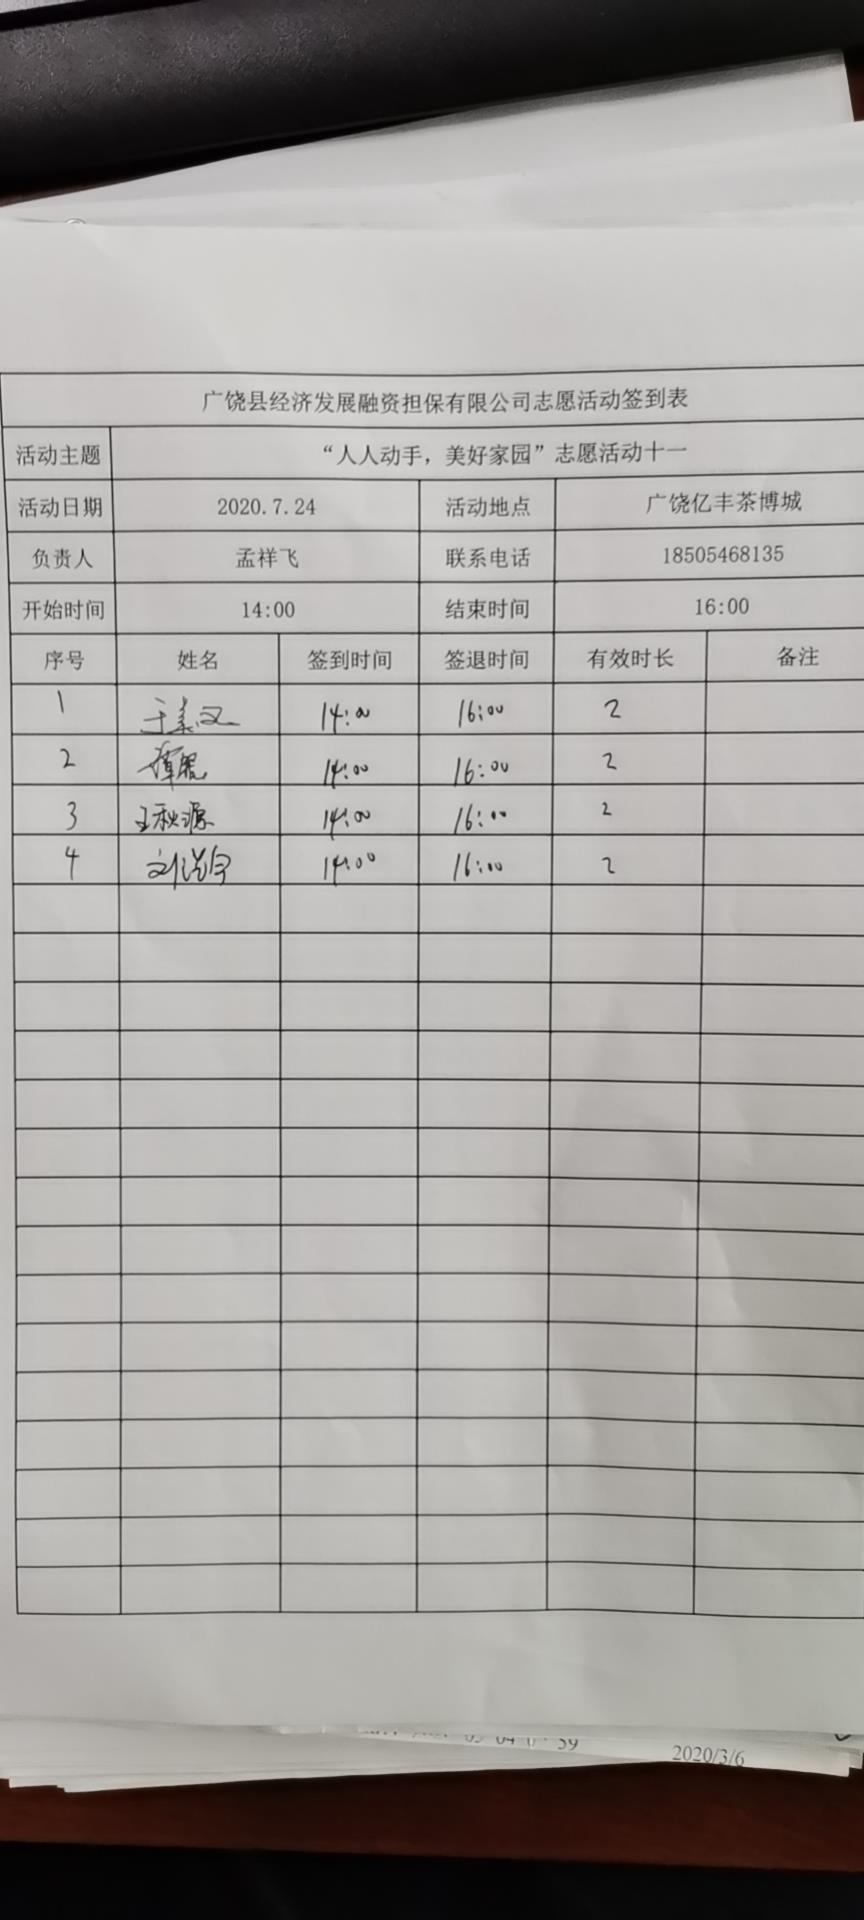 广饶县经济发展融资担保有限公司志愿活动签到表
活动主题 “人人动手，美好家园”志愿活动十一
活动日期 2020.7.24 活动地点 广饶亿丰茶博城
负责人 孟祥飞 联系电话 18505468135
开始时间 14:00 结束时间 16:00
序号 姓名 签到时间 签退时间 有效时长 备注
1 14:00 16:00 2
2 14:00 16:00 2
3 王秋源 14:00 16:00 2
4 14:00 16:00 2
2020/3/6